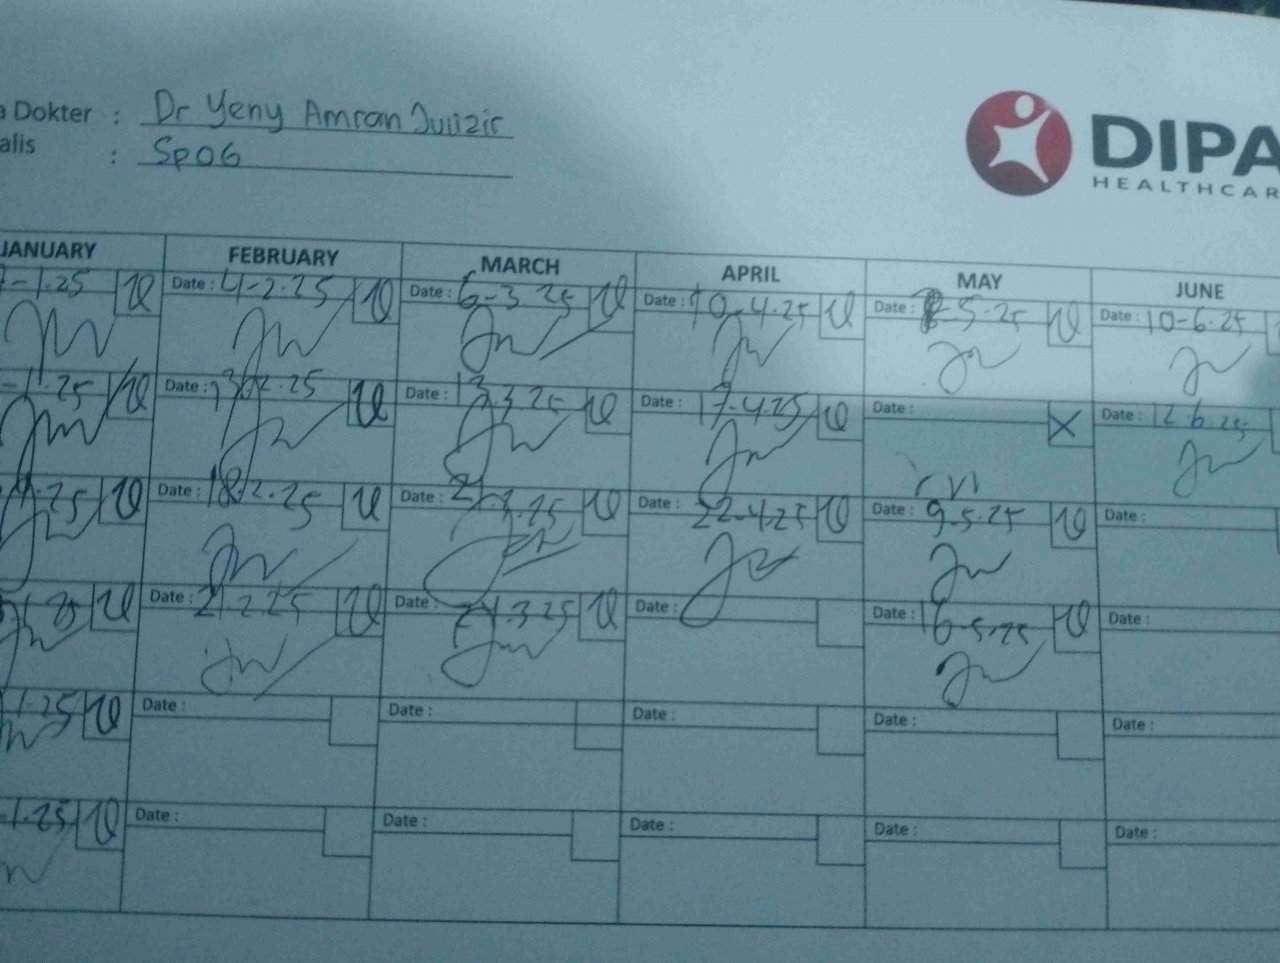 a Dokter : Dr Yeny Amran
alis : SpOG
DIPA
HEALTHCAR
JANUARY FEBRUARY MARCH APRIL MAY JUNE
-1.25 Date : 4-2.25 Date : 6-3.25 Date : 10-4.25 Date : -5.25 Date : 10-6.25
-1.25 Date : 13.2.25 Date : 13.3.25 Date : 17-4.25 Date : Date : 12.6.25
.25 Date : 18.2.25 Date : .3.25 Date : 22-4.25 Date : 9-5.25 Date :
Date : 21.2.25 Date : .3.25 Date : Date : 16-5.25 Date :
1.25 Date : Date : Date : Date : Date :
-1.25 Date : Date : Date : Date : Date :